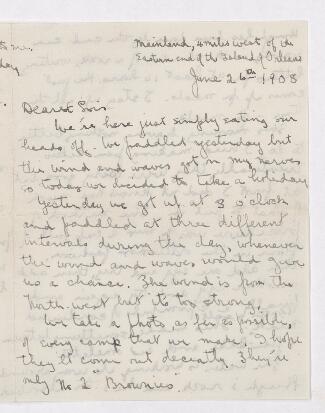 to me.
day
Mainland, 4 miles west of the
Eastern end of the Island of Orleans
June 26th 1908
Dearest Sis-
We're here just simply eating our
heads off. We paddled yesterday but
the wind and waves got on my nerves
so today we decided to take a holiday
Yesterday we got up at 3 o'clock
and paddled at three different
intervals during the day, whenever
the wind and waves would give
us a chance. The wind is from the
North-west but its too strong.
We take a photo, as far as possible,
of every camp that we made. I hope
they'll come out decently. They're
only No 2 "Brownies".